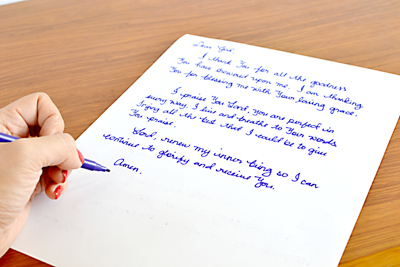 Dear God,
I thank You for all the goodness
You have showered upon me. I am thanking
You for blessing me with Your loving grace.
I praise You Lord, You are perfect in
every way. I live and breathe to Your words
Trying all the best that I could be to give
You praise.
Lord, renew my inner being so I can
continue to glorify and receive You.
Amen.